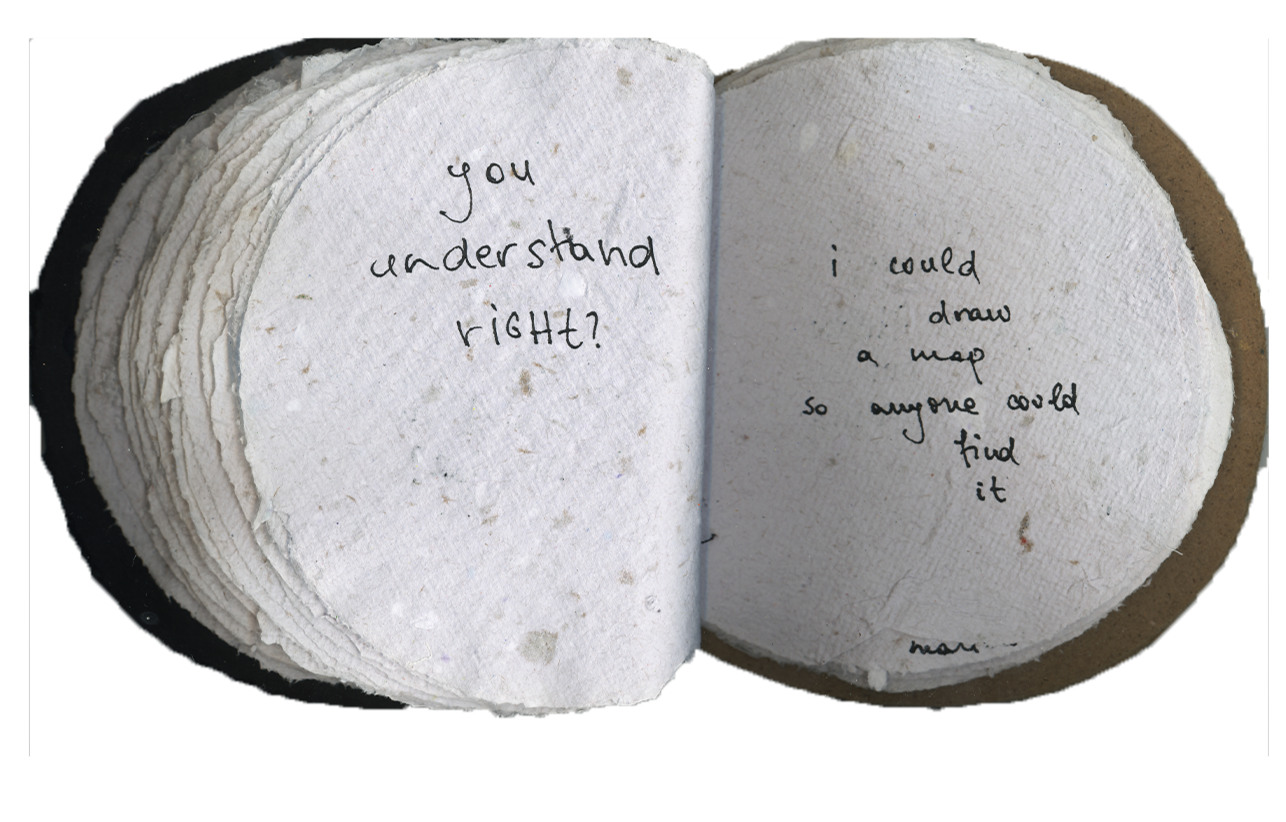 you
understand
riGHt?
i could
draw
a map
so anyone could
find
it